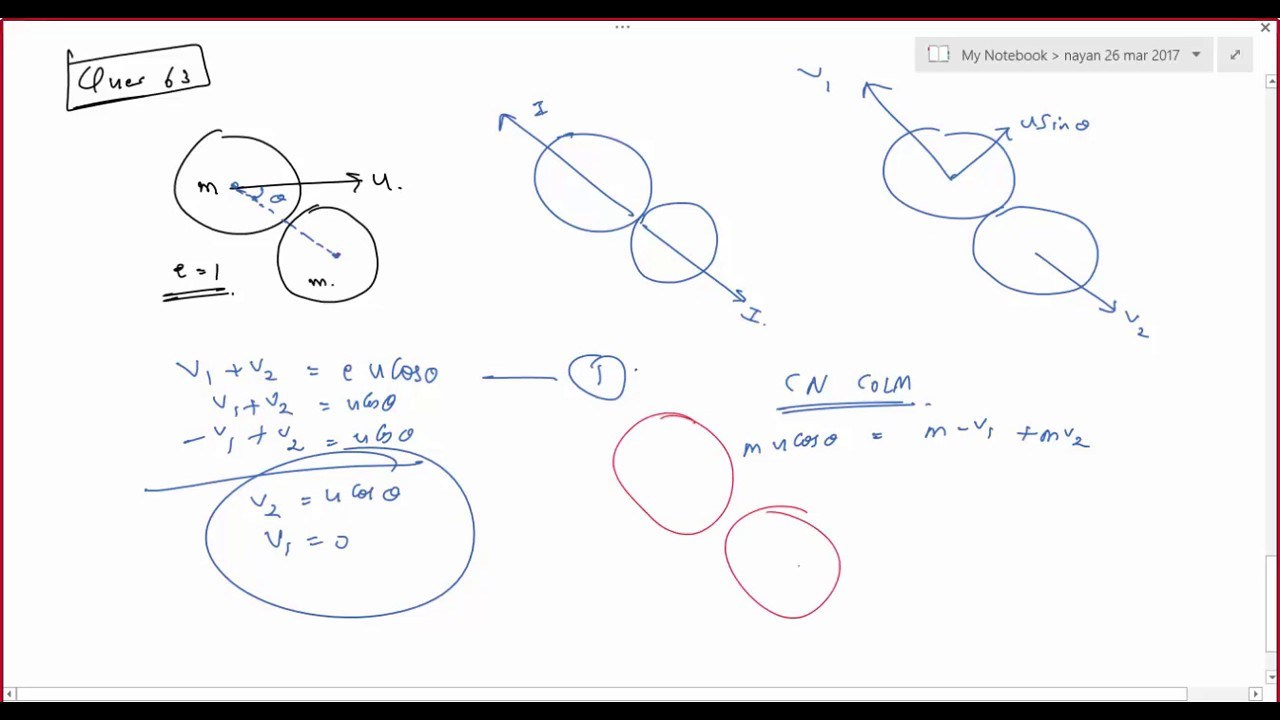 ...
My Notebook > nayan 26 mar 2017
Ques 63
m
u.
θ
m.
e = 1
I
I.
V₁
u sinθ
V₂
V₁ + V₂ = e u cosθ
1
V₁ + V₂ = u cosθ
- V₁ + V₂ = u cosθ
V₂ = u cosθ
V₁ = 0
CN COLM
m u cosθ = m - V₁ + mV₂